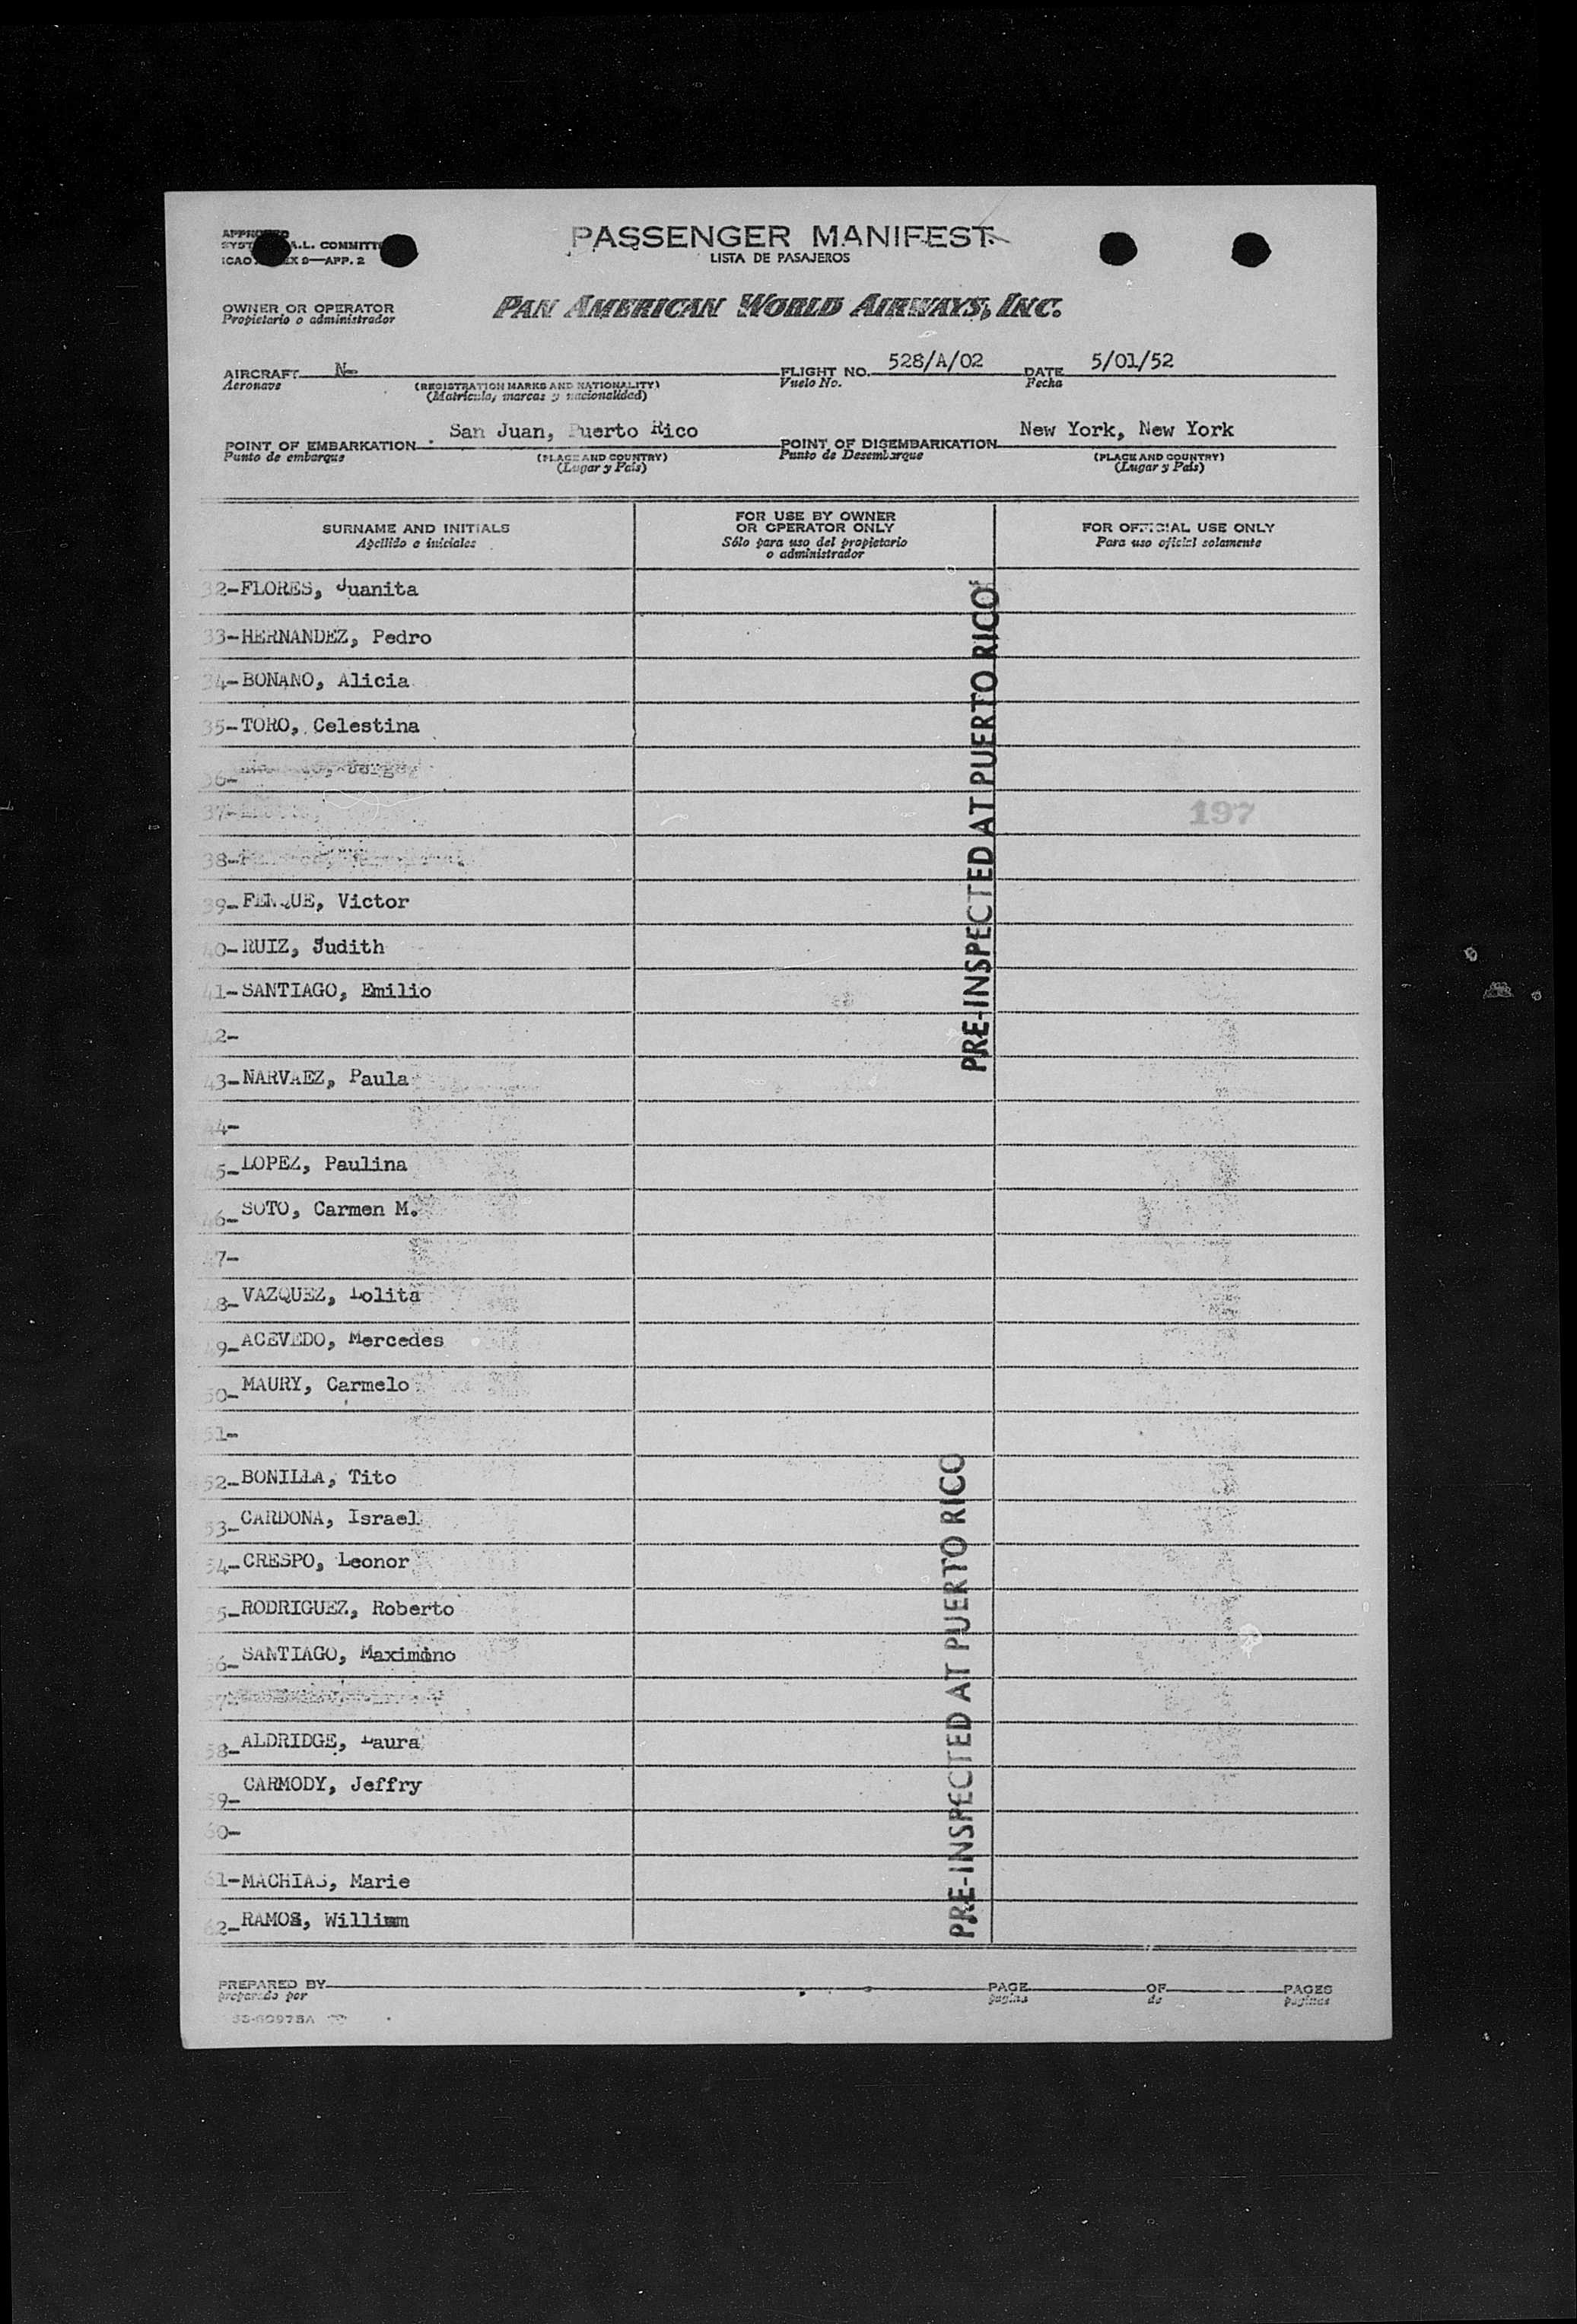 A.L. COMMITT
APP. 2
PASSENGER MANIFEST
LISTA DE PASAJEROS
OWNER OR OPERATOR
Propietario o administrador
PAN AMERICAN WORLD AIRWAYS, INC.
AIRCRAFT N- FLIGHT NO. 528/A/02 DATE 5/01/52
Aeronave (REGISTRATION MARKS AND NATIONALITY) Vuelo No. Fecha
(Matricula, marcas y nacionalidad)
POINT OF EMBARKATION San Juan, Puerto Rico POINT OF DISEMBARKATION New York, New York
Punto de embarque (PLACE AND COUNTRY) Punto de Desembarque (PLACE AND COUNTRY)
(Lugar y País) (Lugar y País)
SURNAME AND INITIALS
Apellido e iniciales
FOR USE BY OWNER
OR OPERATOR ONLY
Sólo para uso del propietario
o administrador
FOR OFFICIAL USE ONLY
Para uso oficial solamente
32-FLORES, Juanita
33-HERNANDEZ, Pedro
34-BONANO, Alicia
35-TORO, Celestina
36-
37-
197
38-
39- Victor
40-RUIZ, Judith
41-SANTIAGO, Emilio
42-
43-NARVAEZ, Paula
44-
45-LOPEZ, Paulina
46-SOTO, Carmen M.
47-
48-VAZQUEZ, Lolita
49-ACEVEDO, Mercedes
50-MAURY, Carmelo
51-
52-BONILLA, Tito
53-CARDONA, Israel
54-CRESPO, Leonor
55-RODRIGUEZ, Roberto
56-SANTIAGO, Maximino
57-
58-ALDRIDGE, Laura
59-CARMODY, Jeffry
60-
61-MACHIAS, Marie
62-RAMOS, William
PRE-INSPECTED AT PUERTO RICO
PRE-INSPECTED AT PUERTO RICO
PREPARED BY PAGE OF PAGES
preparado por pagina de paginas